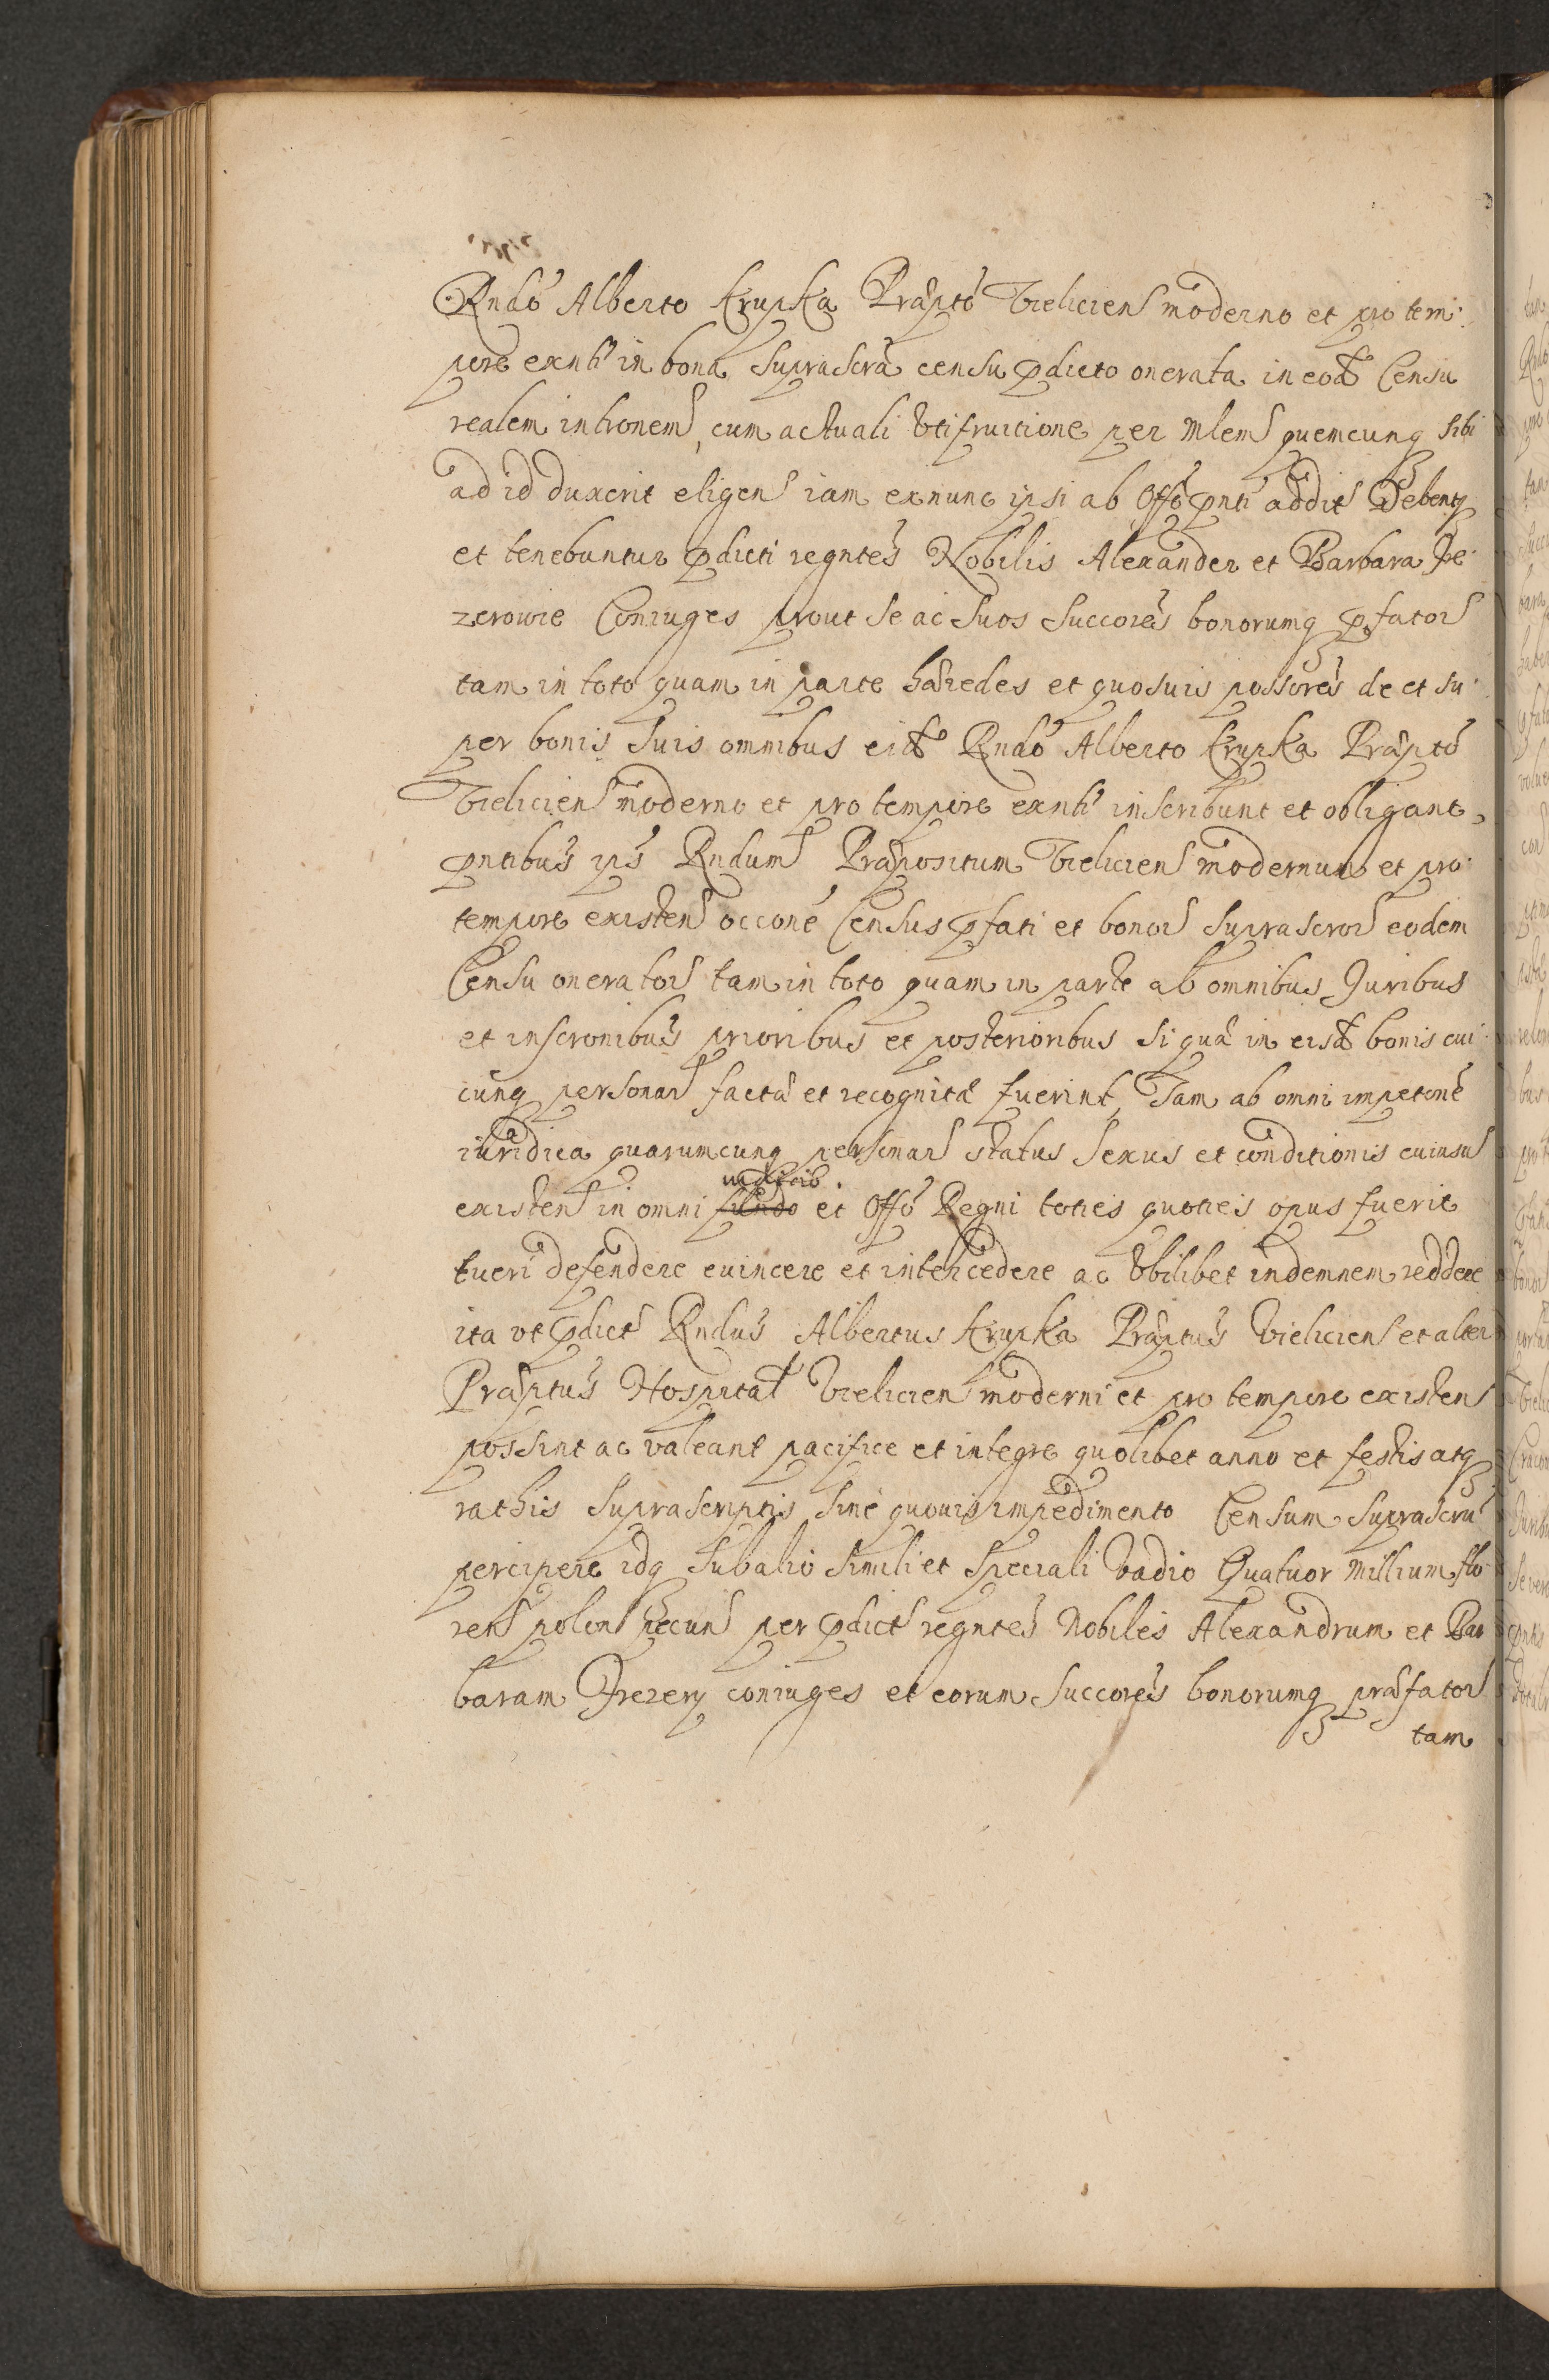 Rndo Alberto Krupka Præpto Vieliciens moderno et pro tem:
pore exnti in bona suprascra censu pdicto onerata in eod Censu
realem intronem, cum actuali Utifruitione per Mlem quemcunq sibi
ad id duxerit eligen iam exnunc ipsi ab Offo pnti addit Debentq
et tenebuntur pdicti regntes Nobilis Alexander et Barbara Je:
zerowie Coniuges prout se ac suos succores bonorumq pfator
tam in toto quam in parte hæredes et quosuis possores de et su:
per bonis suis omnibus eid Rndo Alberto Krupka Præpto
Vieliciens moderno et pro tempore exnti inscribunt et obligant,
pntibus ips Rndum Præpositum Vieliciens modernum et pro
tempore existen occone Census pfati et bonor suprascror eodem
Censu onerator tam in toto quam in parte ab omnibus Juribus
et inscronibus prioribus et posterioribus si quæ in eisd bonis cui:
cunq personar factæ et recognitæ fuerint, Tam ab omni impetone
iuridica quarumcunq personar status sexus et conditionis cuiusu
existen in omni et Offo Regni toties quoties opus fuerit
tueri defendere euincere et intercedere ac Ubilibet indemnem reddere
ita vt pdict Rndus Albertus Krupka Præptus Vieliciens et alter
Præptus Hospital Vieliciens moderni et pro tempore existen
possint ac valeant pacifice et integre quolibet anno et festis atq
rathis suprascriptis sine quouis impedimento Censum suprascru
percipere idq sub alio simili et speciali Vadio Quatuor Millium flo:
ren polon pecun per pdict regntes Nobiles Alexandrum et Bar
baram Jezery coniuges et eorum succores bonorumq præfator
tam